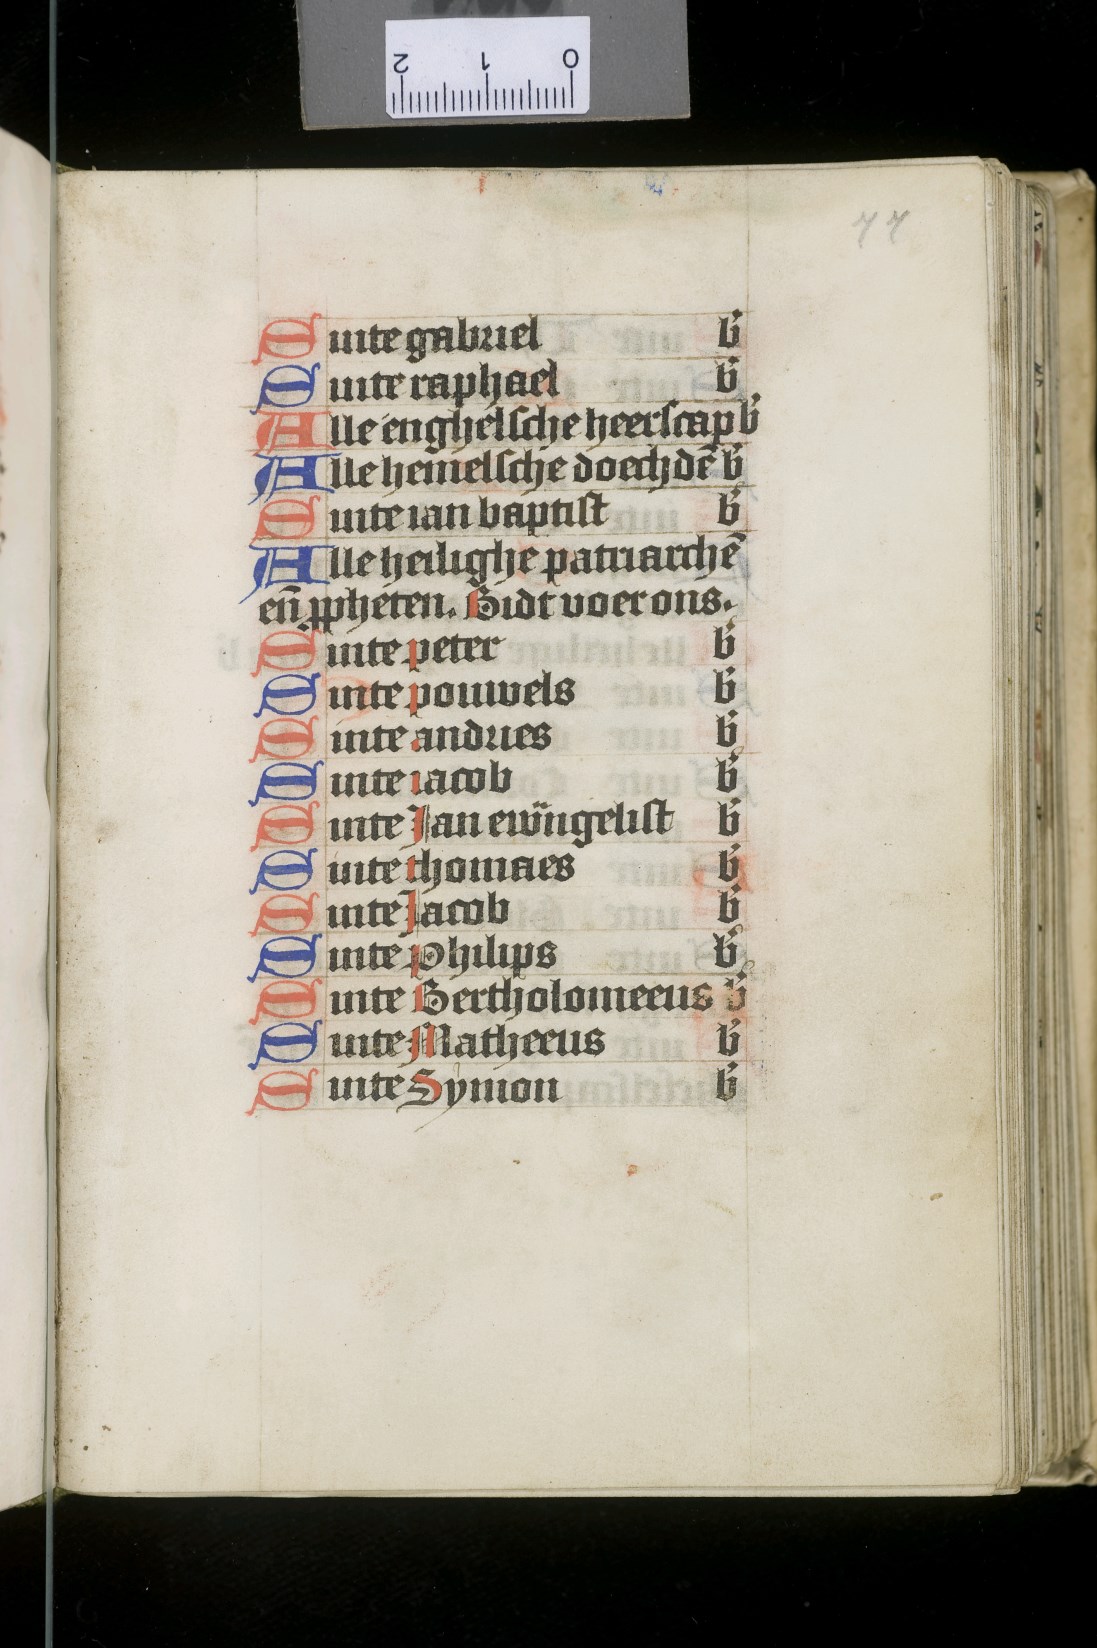 2 1 0
77
Sinte gabriel b
Sinte raphael b
Alle enghelsche heerscap b
Alle hemelsche doechdē b
Sinte ian baptist b
Alle heilighe patriarchē
eñ ꝓpheten. Bidt voer ons.
Sinte peter b
Sinte pouwels b
Sinte andries b
Sinte iacob b
Sinte Jan ewāngelist b
Sinte thomaes b
Sinte Jacob b
Sinte philips b
Sinte Bertholomeeus b
Sinte Matheeus b
Sinte Symon b